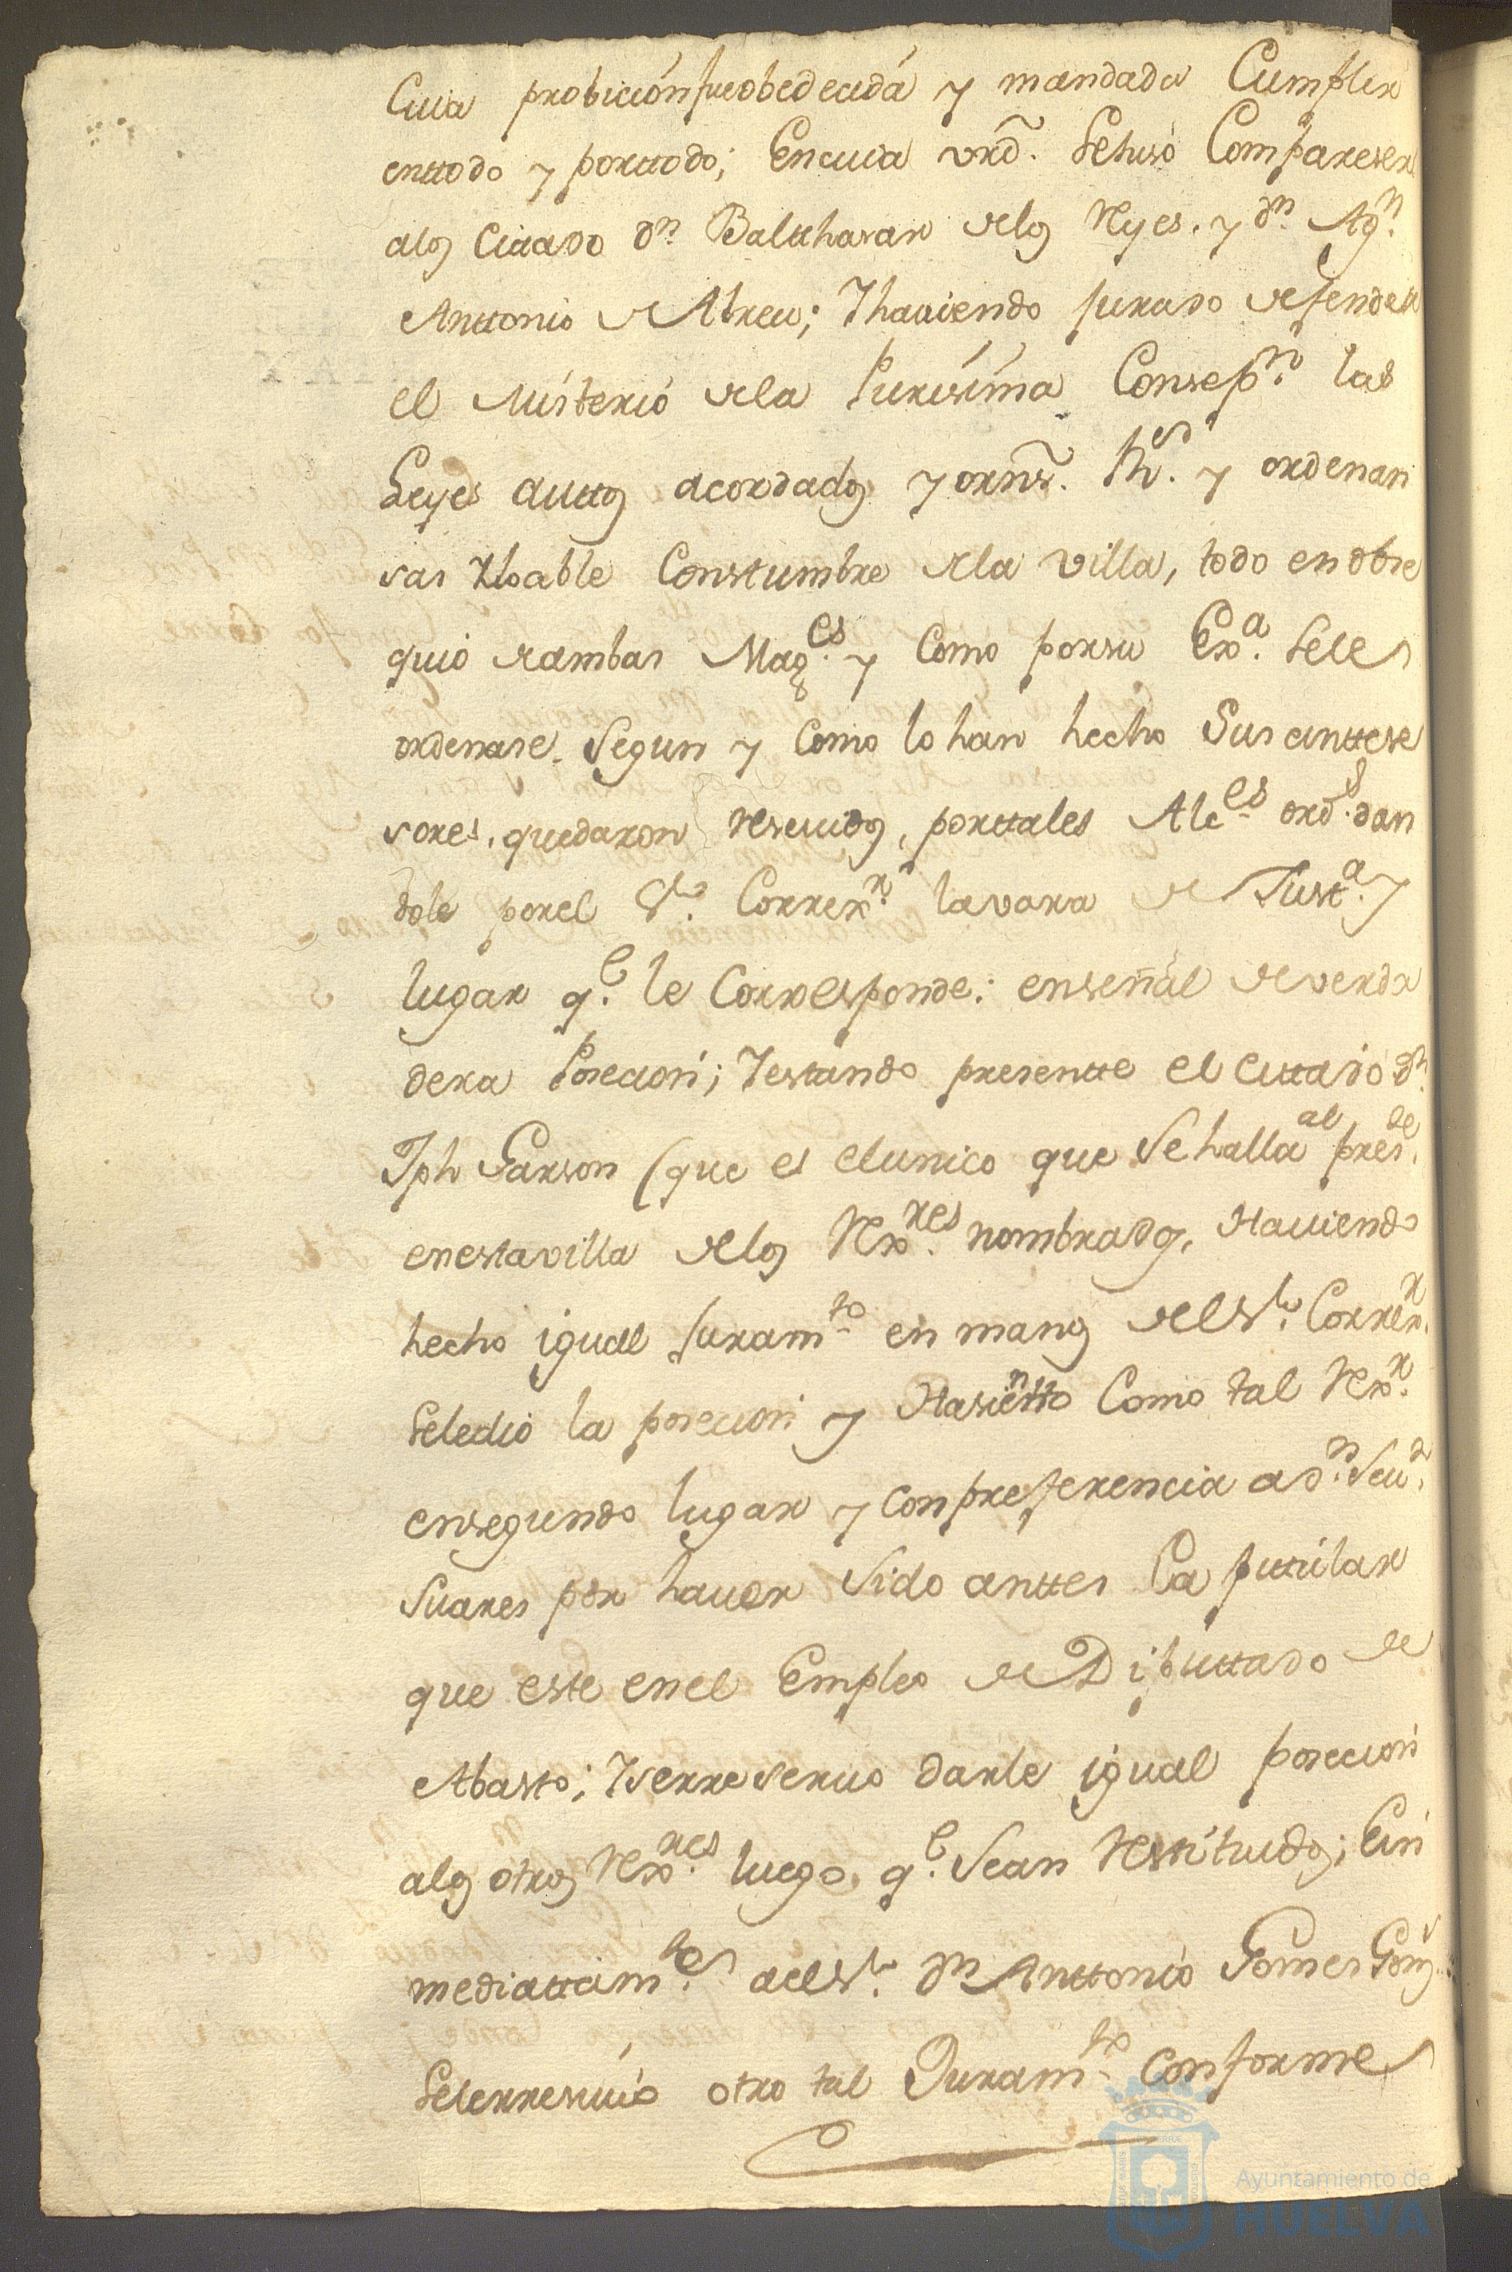 Cuia probición fue obedecidá y mandada Cumplir
enttodo y porttodo; Encuia vrd. Sehiso Compareser
alos Cittado Dn. Balthasar delos Reyes. y Dn. Agn.
Anttonio de Abreu; Y haviendo Jurado defender
el Misterio dela Purisima Consepn. las
Leyes auttos acordados y ornes. Rs. y ordenan
sas Yloable Constumbre dela villa, todo en obse
quio deambas Mages. y Como porsu Exa. Seles
ordenase. Segun y Como lo han hecho Sus anttese
sores, quedaron resevidos, porttales Alces. ords. dan
dole porel Sr. Correxr. lavara de Justa. y
lugar qe. le Corresponde: enseñal deverda
dera Posecion; Y estando presentte el cittado Dn.
Jph Garson (que es elunico que Sehalla al presde.
enestavilla delos Rexres. nombrados, Haviendo
hecho igual Juramto. en manos del Sr. Correxr.
Seledio la posecion y Hasientto Como tal Rexr.
ensegundo lugar y conpreferencia a Dn.
Suares por haver Sido anttes Capittular
que este enel Empleo de Diputtado de
Abasto; Yserreservo darle igual posecion
alos otros Rexres. luego qe. Sean Restituidos; Ein
mediattamte. del Sr. Dn Anttonio Gomes
Selerresivió otro tal Juramto. conforme
Ayuntamiento de
HUELVA